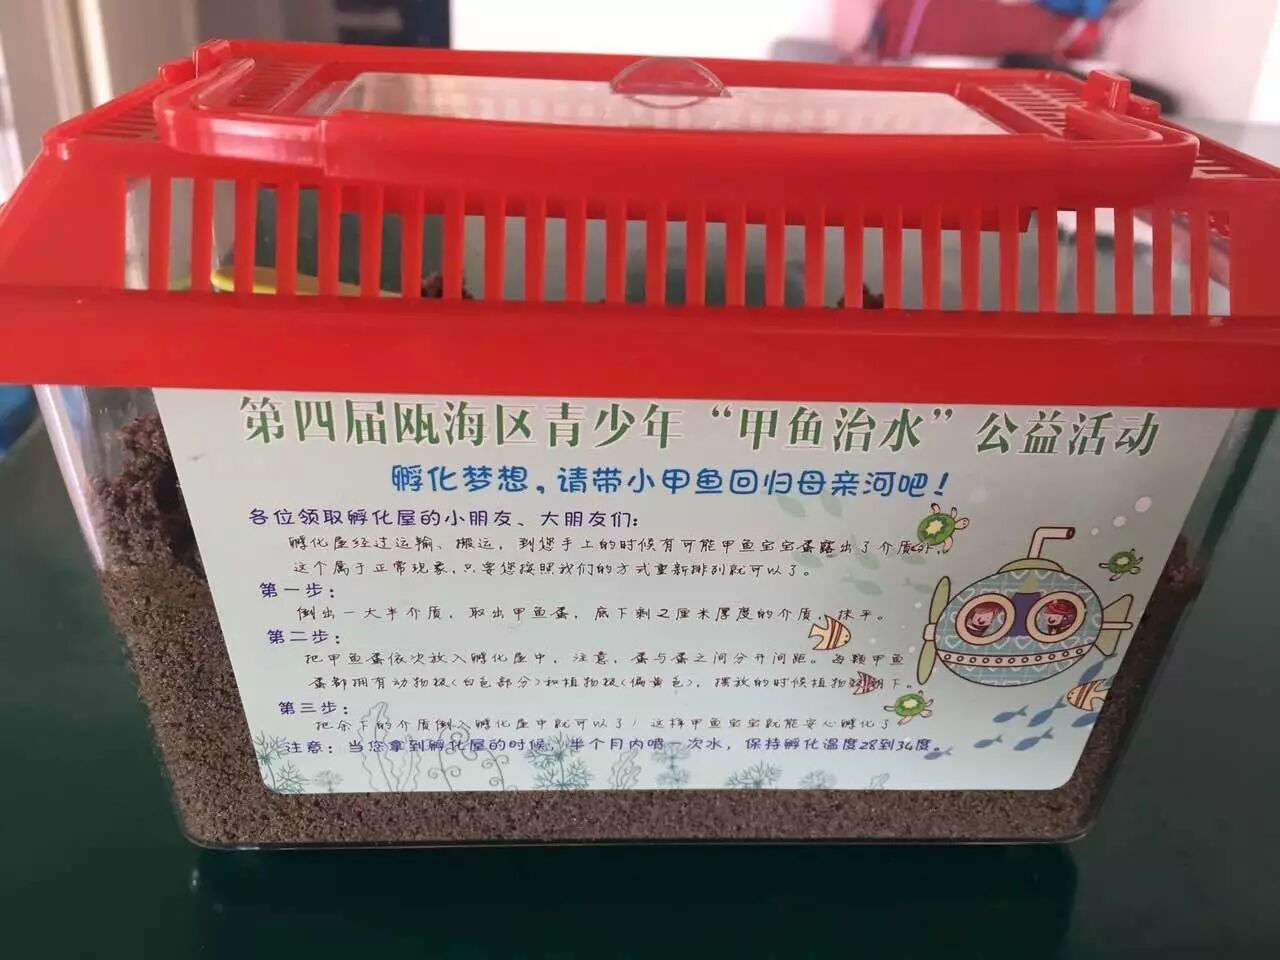 第四届瓯海区青少年“甲鱼治水”公益活动
孵化梦想,请带小甲鱼回归母亲河吧!
各位领取孵化屋的小朋友、大朋友们:
孵化屋经过运输、搬运,到您手上的时候有可能甲鱼宝宝蛋露出了介质外,
这个属于正常现象,只要您按照我们的方式重新排列就可以了。
第一步:
倒出一大半介质,取出甲鱼蛋,底下剩2厘米厚度的介质,抹平。
第二步:
把甲鱼蛋依次放入孵化屋中,注意,蛋与蛋之间分开间距。每颗甲鱼
蛋都拥有动物极(白色部分)和植物极(偏黄色),摆放的时候植物极朝下。
第三步:
把余下的介质倒入孵化屋中就可以了!这样甲鱼宝宝就能安心孵化了
注意:当您拿到孵化屋的时候,半个月内喷一次水,保持孵化温度28到34度。